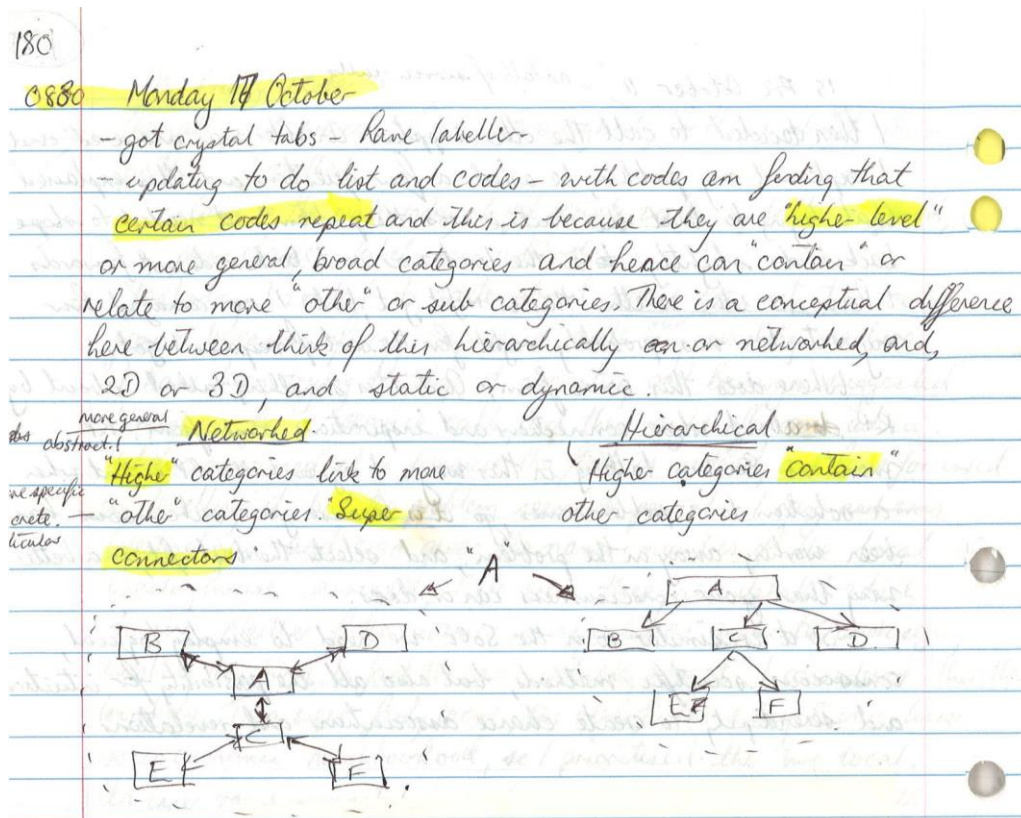 180
0830 Monday 17 October
- got crystal tabs - have labeller
- updating to do list and codes - with codes am finding that
certain codes repeat and this is because they are "higher-level"
or more general, broad categories and hence can "contain" or
relate to more "other" or sub categories. There is a conceptual difference
here between think of this hierarchically or networked, and,
2D or 3D, and static or dynamic.
more general
abstract!
Networked
Hierarchical
"Higher" categories link to more
Higher categories "contain"
"other" categories. "Super
other categories
connectors"
"A"
B
D
A
C
E
F
A
B
C
D
E
F